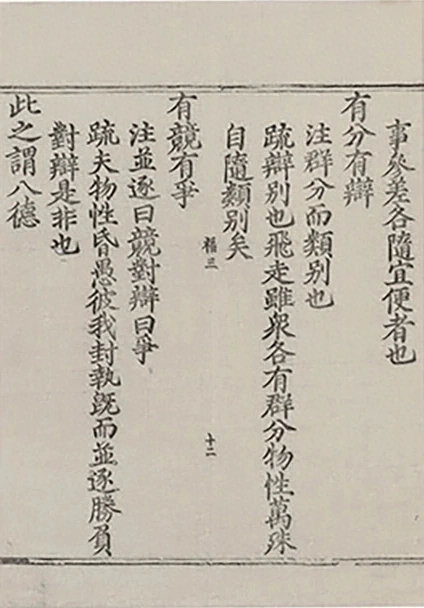 事參差各隨宜便者也
有分有辯
注群分而類别也
疏辯别也飛走雖衆各有群分物性萬殊
自隨類别矣
福三
十二
有競有爭
注並逐曰競對辯曰爭
疏夫物性昏愚彼我封執旣而並逐勝負
對辯是非也
此之謂八德